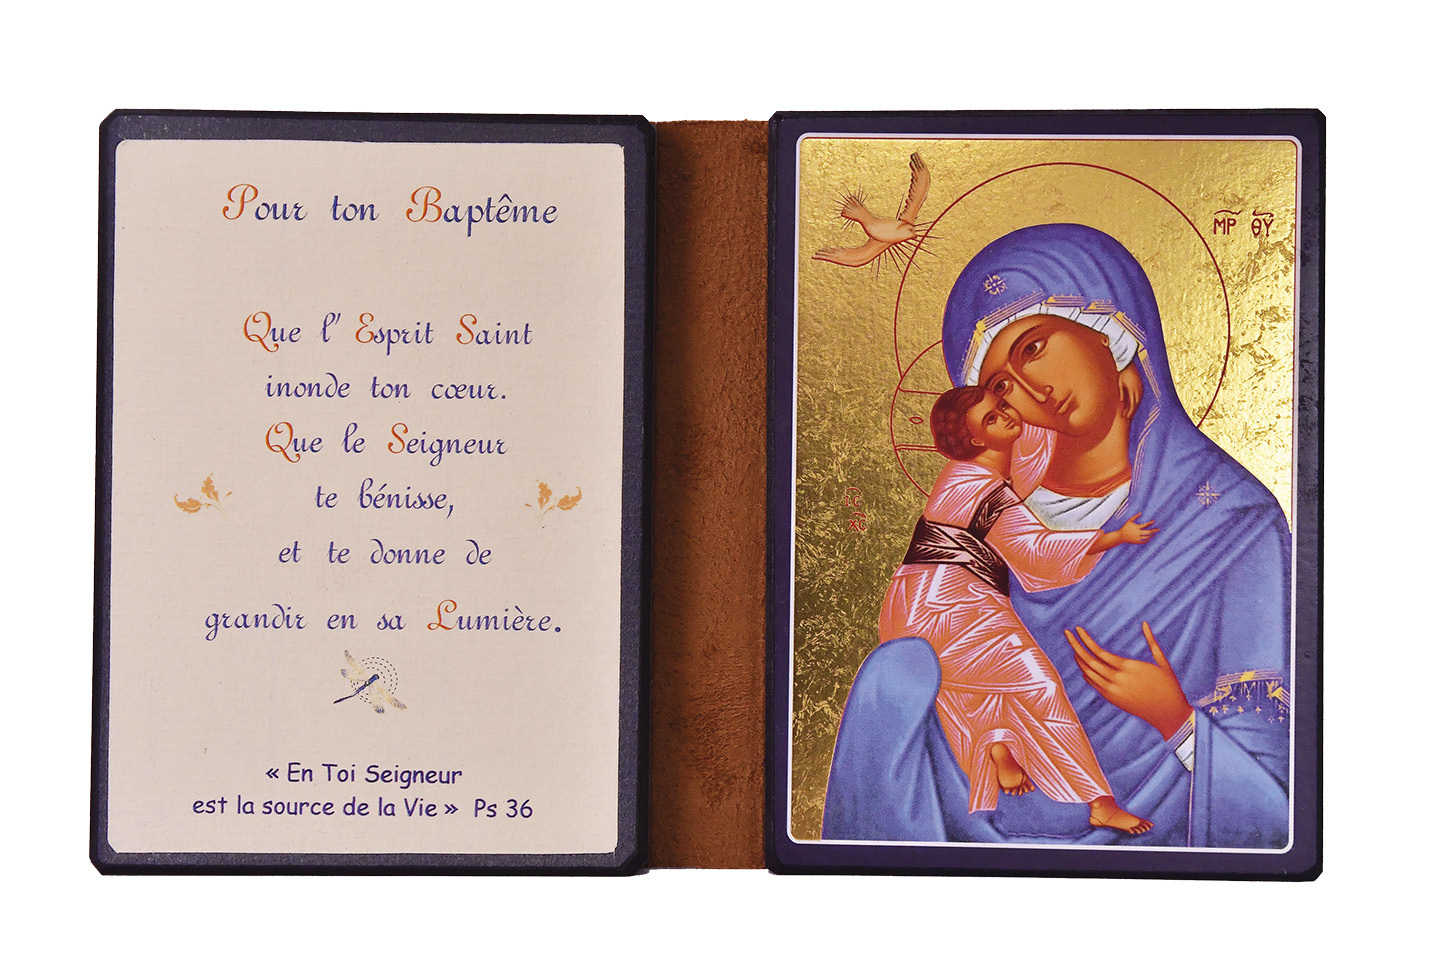 Pour ton Baptême
Que l' Esprit Saint
inonde ton cœur.
Que le Seigneur
te bénisse,
et te donne de
grandir en sa Lumière.
« En Toi Seigneur
est la source de la Vie » Ps 36
ΜΡ ΘΥ
ΙC
ΧC